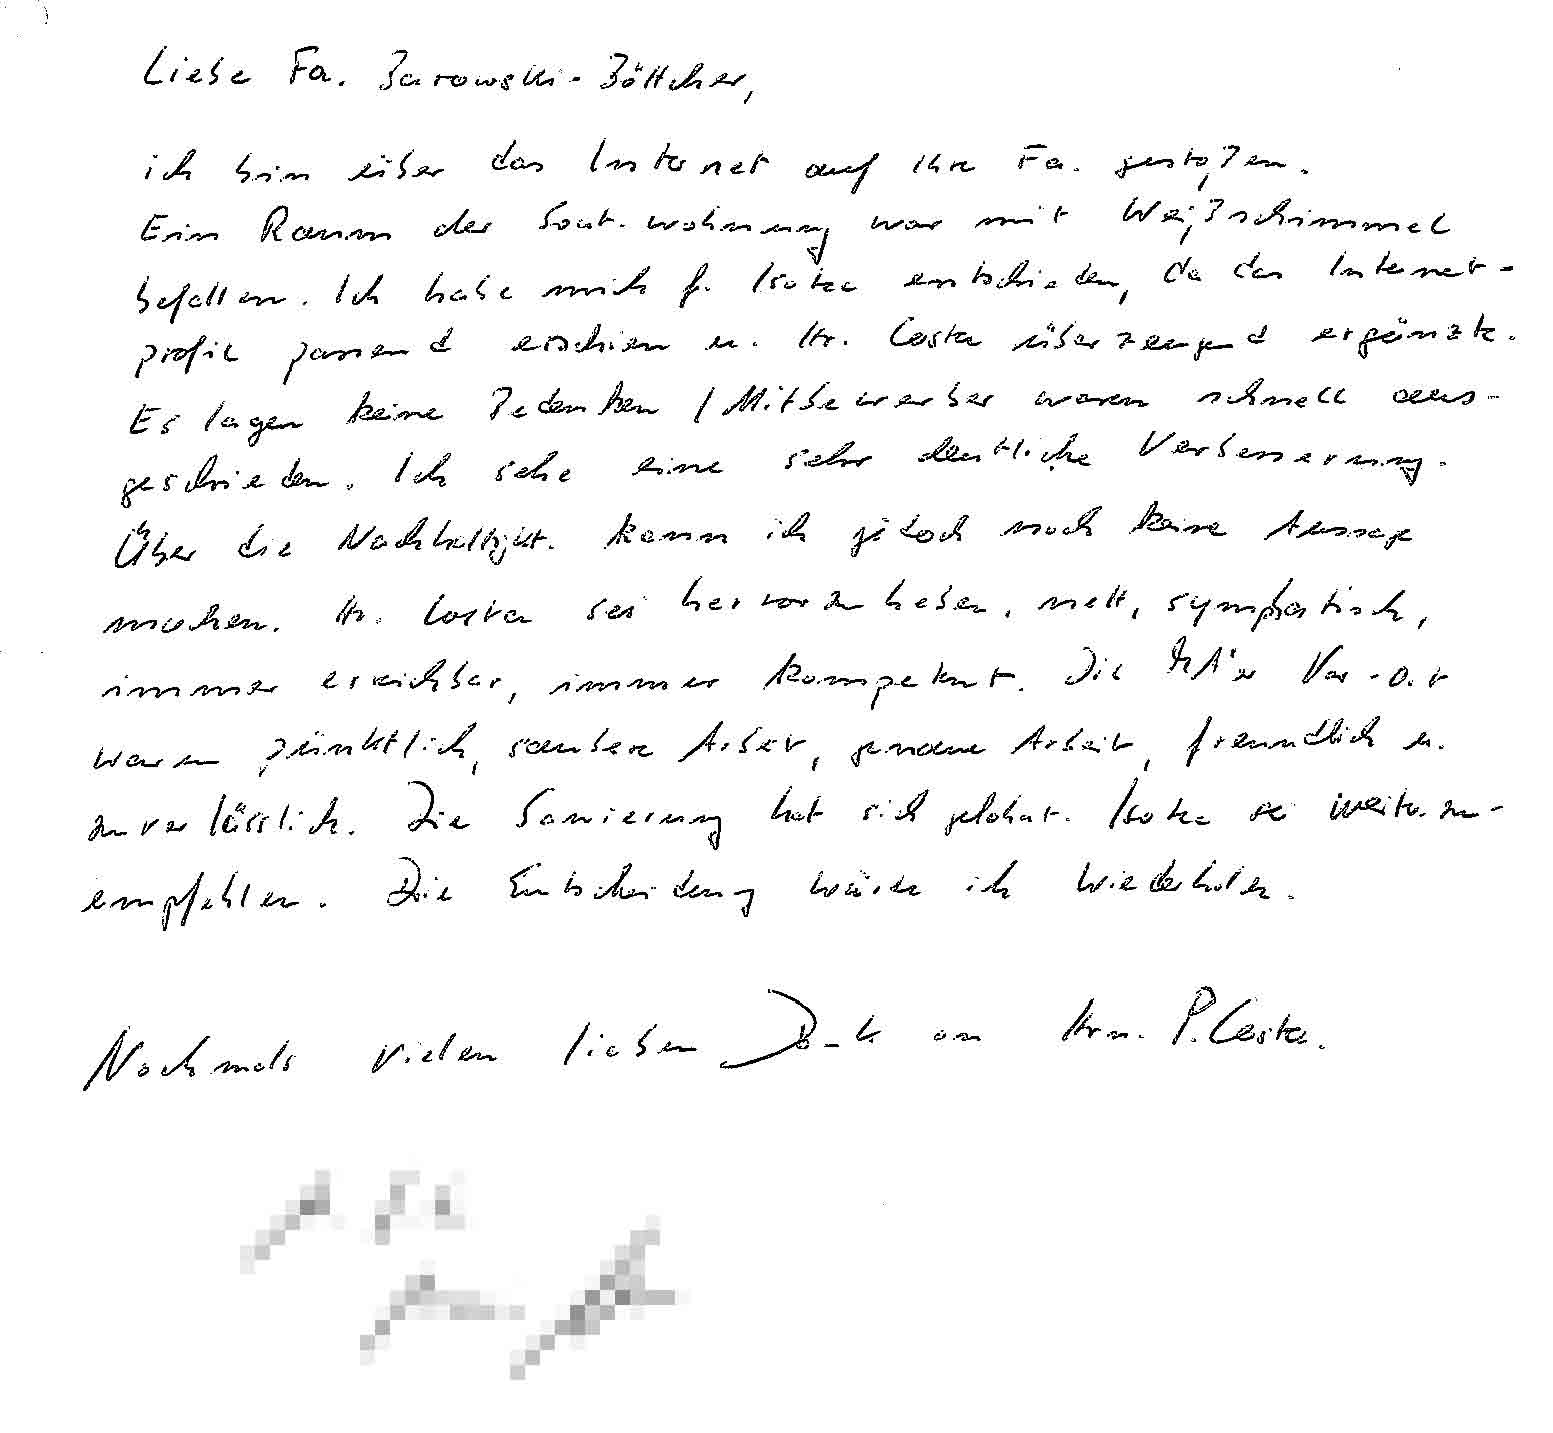 Liebe Fa. Barowski-Böttcher,
ich bin über das Internet auf Ihre Fa. gestoßen.
Ein Raum der Sout.wohnung war mit Weißschimmel
befallen. Ich habe mich f. Isotec entschieden, da das Internet-
profil passend erschien u. Hr. Costa überzeugend ergänzte.
Es lagen keine Bedenken / Mitbewerber waren schnell aus-
geschieden. Ich sehe eine sehr deutliche Verbesserung.
Über die Nachhaltigkt. kann ich jedoch noch keine Aussage
machen. Hr. Costa sei hervorzuheben, nett, sympathisch,
immer erreichbar, immer kompetent. Die MA'er Vor-Ort
waren pünktlich, saubere Arbeit, genaue Arbeit, freundlich u.
zuverlässlich. Die Sanierung hat sich gelohnt. Isotec sei weiterzu-
empfehlen. Die Entscheidung würde ich wiederholen.
Nochmals vielen lieben Dank an Hrn. P. Costa.